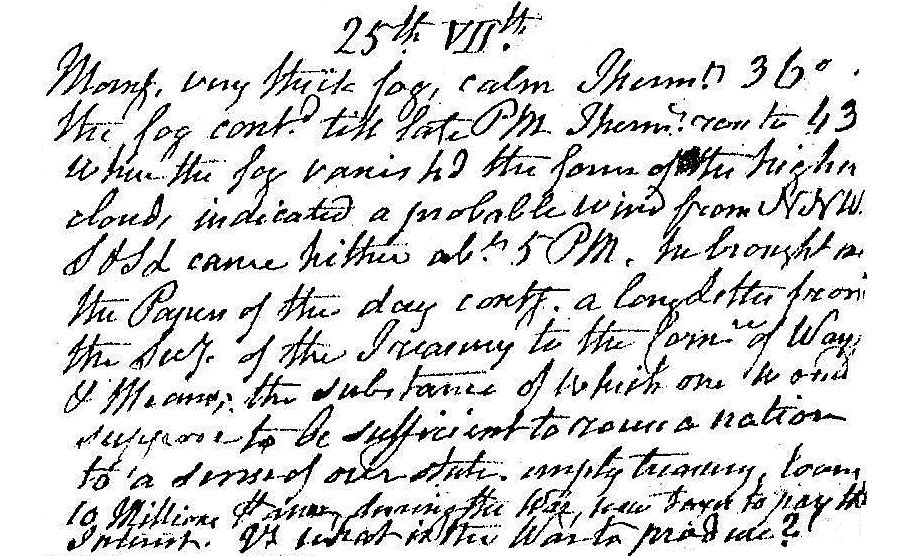 25th VIIth
Morng. very thick fog, calm Thermr. 36°.
the fog contd. till late PM Thermr. rose to 43
when the fog vanishd the form of the higher
clouds indicated a probable wind from NNW.
came hither abt. 5 PM. he brought me
the Papers of the day contg. a long Letter from
the Secy. of the Treasury to the Comee of Ways
& Means; the substance of which one would
suppose to be sufficient to rouse a nation
to a sense of our state. empty treasury, loans
10 Millions during the War, new Taxes to pay the
Interest. what is the War to produce?